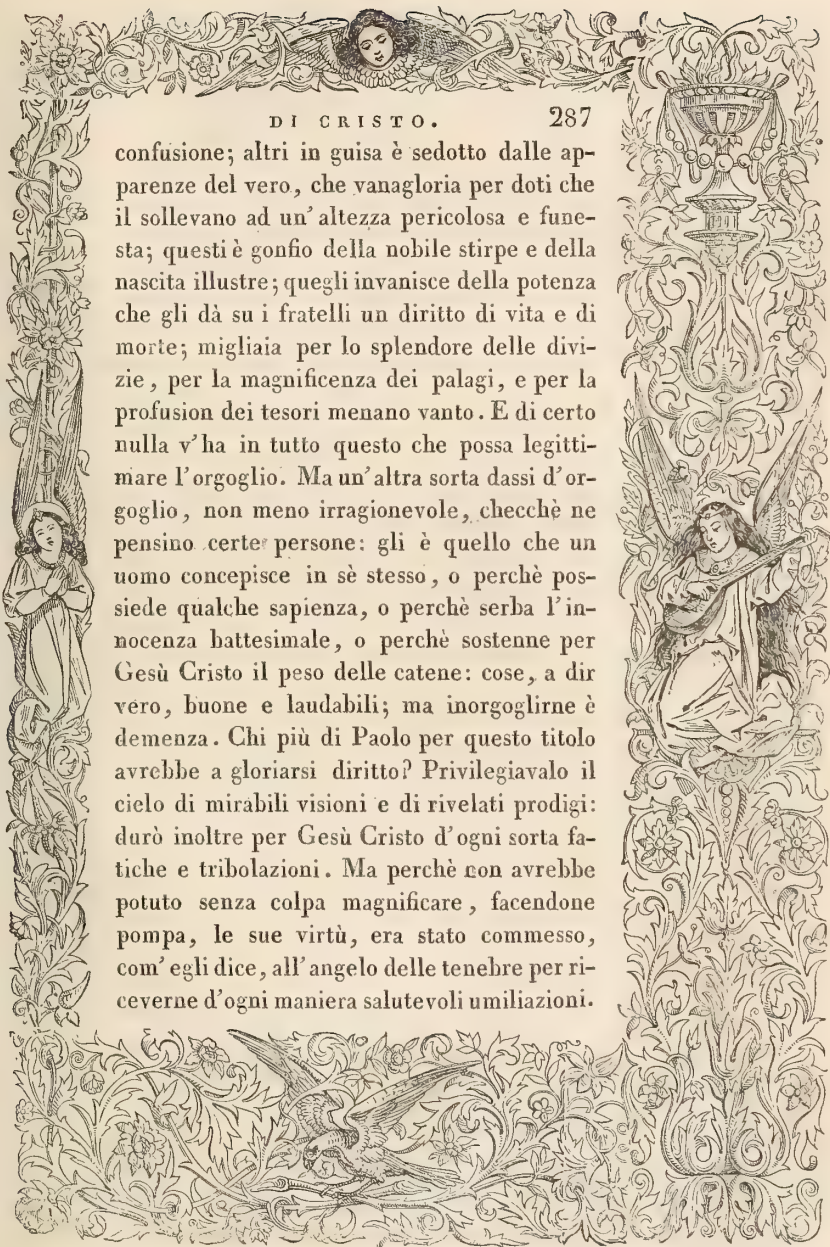 DI CRISTO. 287
confusione; altri in guisa è sedotto dalle ap-
parenze del vero, che vanagloria per doti che
il sollevano ad un' altezza pericolosa e fune-
sta; questi è gonfio della nobile stirpe e della
nascita illustre; quegli invanisce della potenza
che gli dà su i fratelli un diritto di vita e di
morte; migliaia per lo splendore delle divi-
zie, per la magnificenza dei palagi, e per la
profusion dei tesori menano vanto. E di certo
nulla v'ha in tutto questo che possa legitti-
mare l'orgoglio. Ma un'altra sorta dassi d'or-
goglio, non meno irragionevole, checchè ne
pensino certe persone: gli è quello che un
uomo concepisce in sè stesso, o perchè pos-
siede qualche sapienza, o perchè serba l'in-
nocenza battesimale, o perchè sostenne per
Gesù Cristo il peso delle catene: cose, a dir
vero, buone e laudabili; ma inorgoglirne è
demenza. Chi più di Paolo per questo titolo
avrebbe a gloriarsi diritto? Privilegiavalo il
cielo di mirabili visioni e di rivelati prodigi:
durò inoltre per Gesù Cristo d'ogni sorta fa-
tiche e tribolazioni. Ma perchè non avrebbe
potuto senza colpa magnificare, facendone
pompa, le sue virtù, era stato commesso,
com' egli dice, all'angelo delle tenebre per ri-
ceverne d'ogni maniera salutevoli umiliazioni.